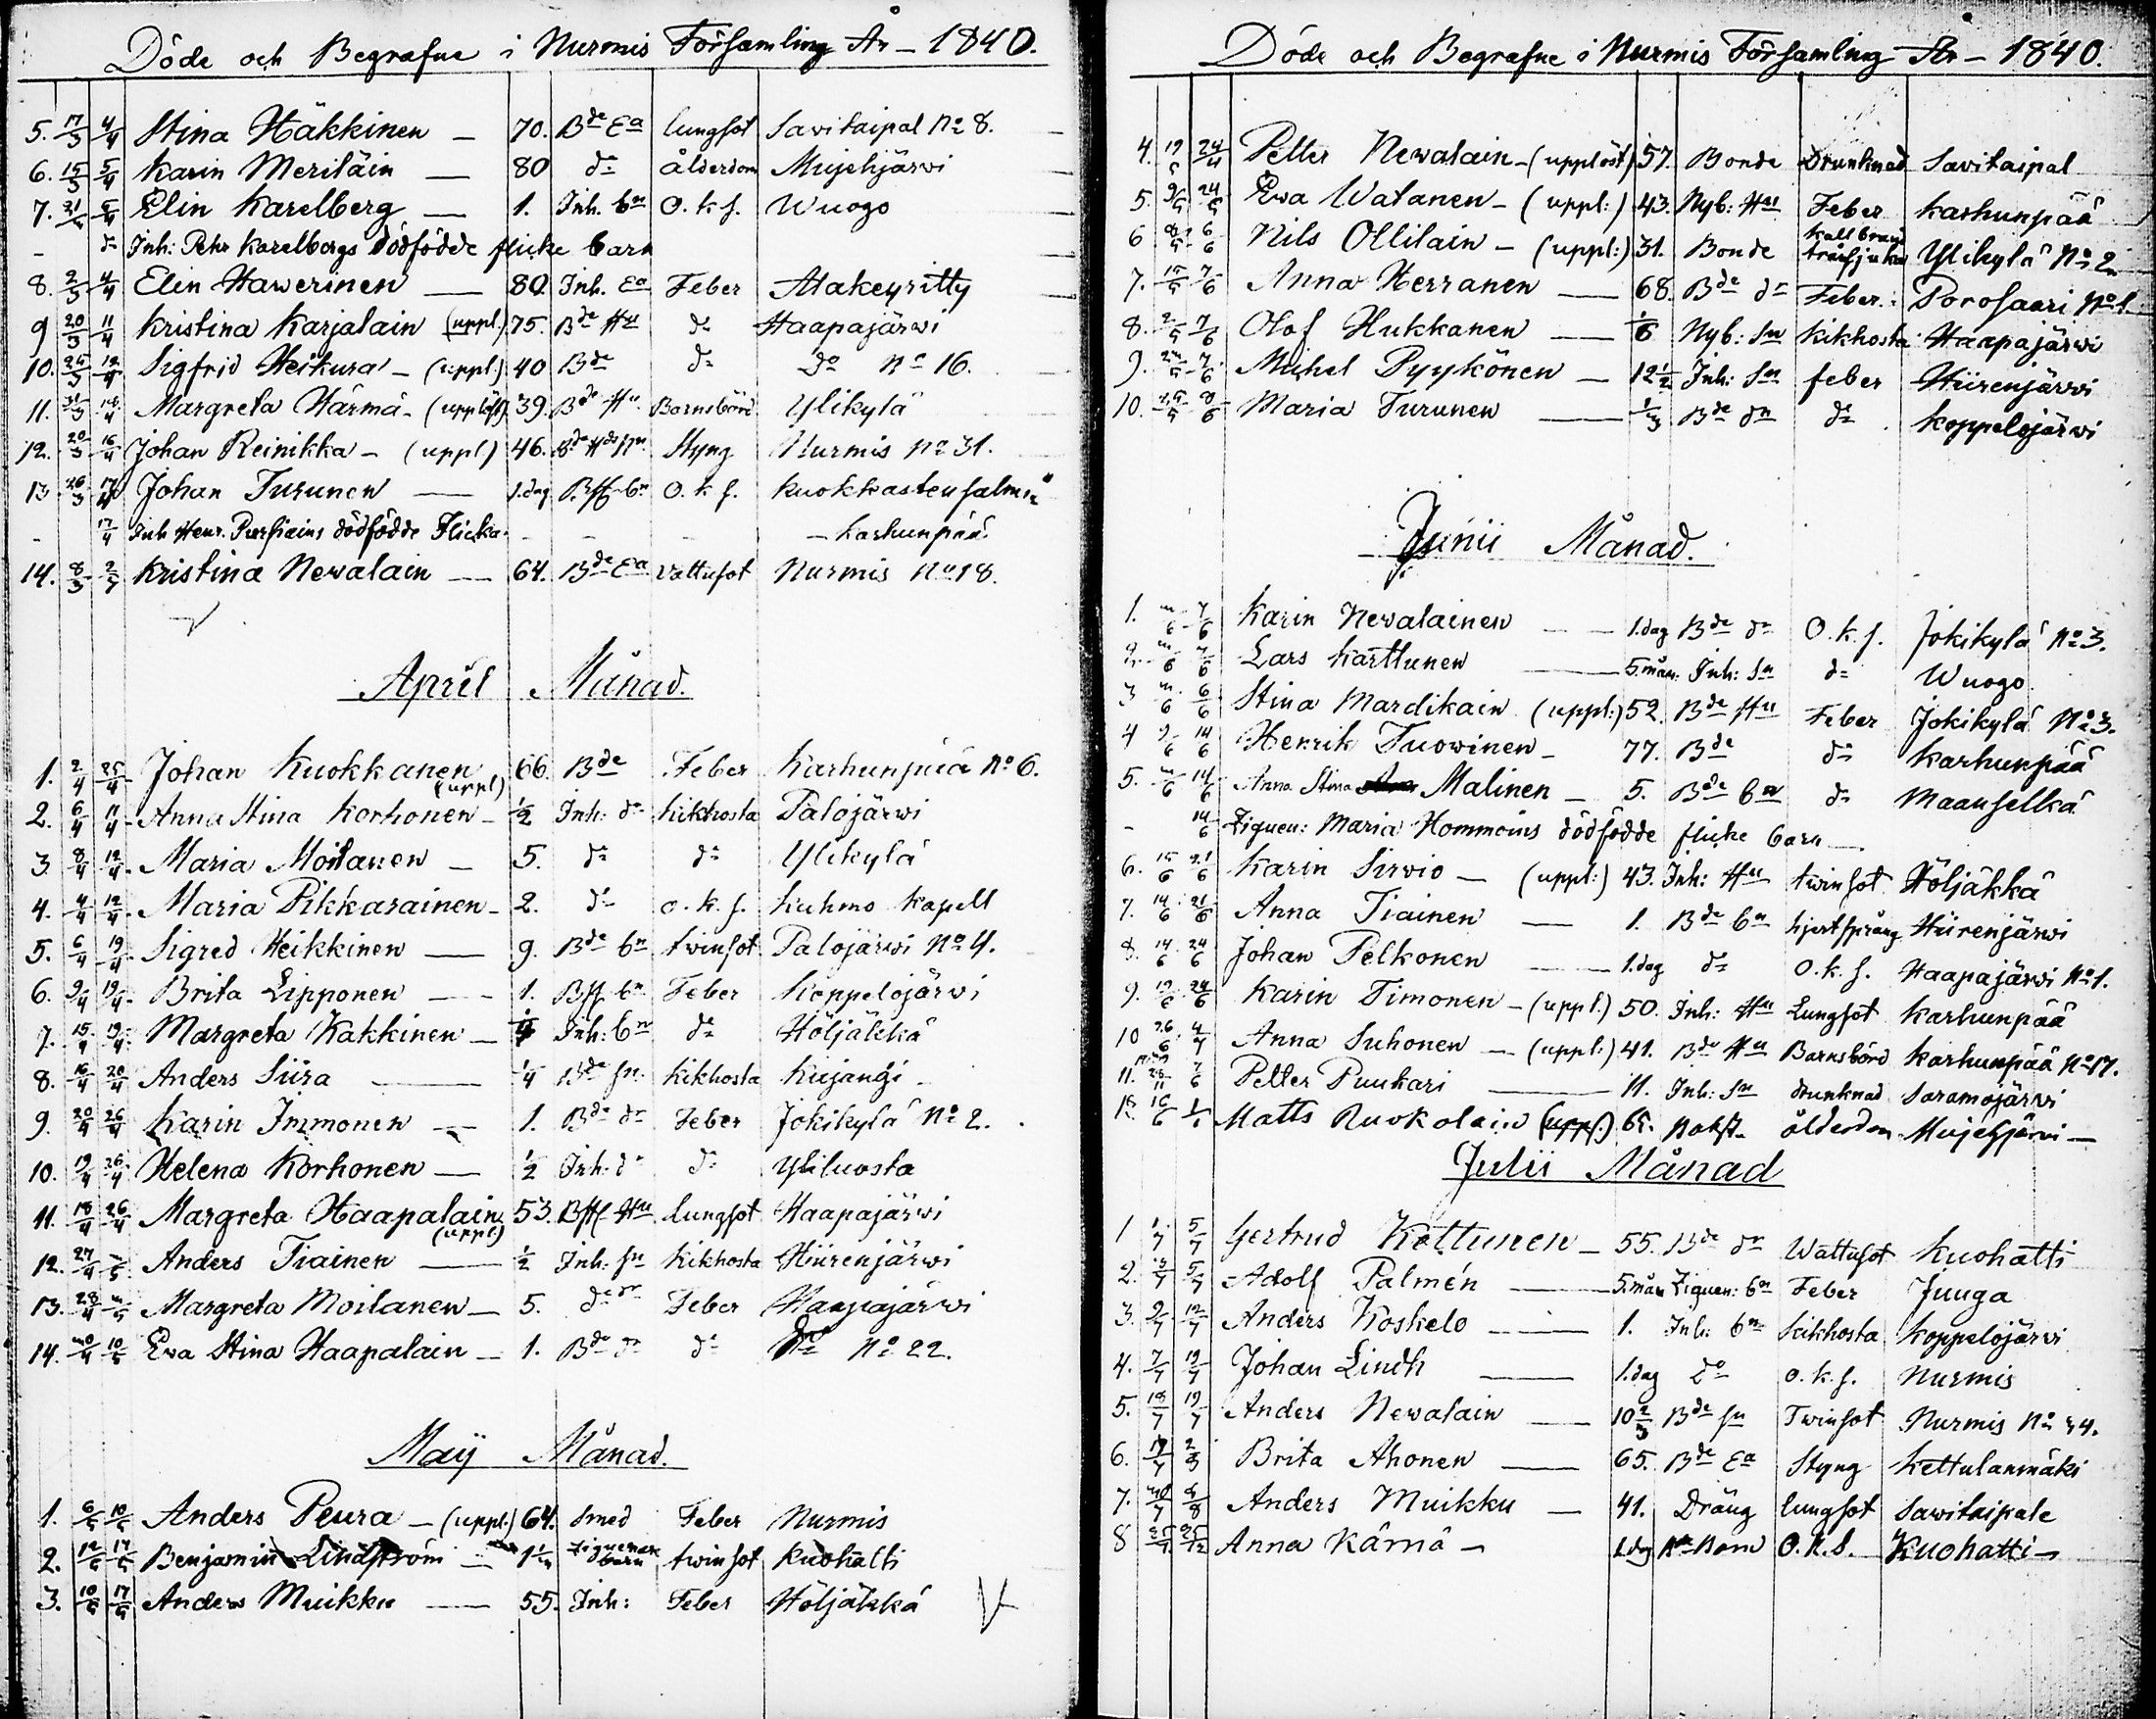 Döde och Begrafne i Nurmis Församling År - 1840.
5. 17/3 4/4 Stina Häkkinen — 70. Bde Ea lungsot Savitaipal No 8.
6. 15/3 5/4 Karin Meriläin — 80 do ålderdom Mujehjärwi
7. Elin Karelberg — 1. Inh. bn O. k. s. Wuogo
- do Inh: Pehr Karelbergs dödfödde flicke barn
8. 2/3 4/4 Elin Hawerinen — 80. Inh. Ea Feber Atakeyritty
9 20/3 11/4 Kristina Karjalain (uppl.) 75. Bde Hu do Haapajärwi
10. 25/3 12/4 Sigfrid Heikura - (uppl.) 40 Bde do do No 16.
11. 31/3 Margreta Härmä - (upplöst) 39. Bde Hu Barnsbörd Ylikylä
12. 20/3 16/4 Johan Reinikka - (uppl) 46. Styng Nurmis No 31.
13 26/3 17/4 Johan Turunen — 1.dag Bss bn O. k. s. Kuokkastensalmi
- 17/4 Inh Henr. Pursiains dödfödde Flicka - - - - Karhunpää
14. 8/3 Kristina Newalain — 64. Bde Ea Vattusot Nurmis No 18.
April Månad.
1. 2/4 25/4 Johan Kuokkanen (uppl) 66. Bde Feber Karhunpää No 6.
2. 6/4 11/4 Anna Stina Korhonen - 1/2 Inh: do kikhosta Palojärwi
3 8/4 12/4 Maria Moilanen — 5. do do Ylikylä
4. 4/4 12/4 Maria Pikkarainen - 2. do o. k. s. Kuhmo Kapell
5. 6/4 19/4 Sigred Heikkinen — 9. Bde bn twinsot Palojärwi No 4.
6. 9/4 19/4 Brita Lipponen — 1. Bss bn Feber Koppelojärwi
7. 15/4 19/4 Margreta Kakkinen — Inh: bn do Höljäkkä
8. 16/4 20/4 Anders Siira — 1/4 Bde sn kikhosta Kujangi
9. 20/4 26/4 Karin Immonen — 1. Bde dr Feber Jokikylä No 2.
10. 19/4 26/4 Helena Korhonen — 1/2 Inh: do do Yliluosta
11. 18/4 26/4 Margreta Haapalain (uppl) 53. Bss Hu Lungsot Haapajärwi
12. 27/4 Anders Tiainen — 1/2 Inh: sn kikhosta Hiirenjärwi
13. 28/4 Margreta Moilanen — 5. do dr Feber Haapajärwi
14. 10/5 Ewa Stina Haapalain — 1. Bde dr do do No 22.
Maij Månad.
1. 6/5 10/5 Anders Peura - (uppl.) 64. Smed Feber Nurmis
2. 12/5 17/5 Benjamin Lindström — Ziguenare barn twinsot Kuohatti
3. 10/5 17/5 Anders Muikku — 55. Inh: Feber Höljäkkä
Döde och Begrafne i Nurmis Församling År - 1840.
4. Petter Newalain - (upplöst) 57. Bonde Drunknad Savitaipal
5. 9/5 24/5 Ewa Watanen - (uppl:) 43. Nyb: Hu Feber Karhunpää
6 Nils Ollilain - (uppl:) 31. Bonde Kallbrand Ylikylä No 2
7. 15/5 7/6 Anna Herranen — 68. Bde dr Feber: Porosaari No 1
8. 7/6 Olof Hukkanen — 1/6 Nyb: Sn kikhosta Haapajärwi
9. 7/6 Michel Pyykönen — 12 1/2 Inh: Sn feber Hiirenjärwi
10. 25/5 8/6 Maria Turunen — 1/3 Bde dr do Koppelojärwi
Junii Månad.
1. 7/6 Karin Newalainen — 1.dag Bde dr O. k. s. Jokikylä No 3.
2. 7/6 Lars Karttunen — 5.mån: Inh: Sn do Wuogo
3 6/6 Stina Mardikain (uppl:) 52. Bde Hu Feber Jokikylä No 3.
4 9/6 14/6 Henrik Tuowinen - 77. Bde do Karhunpää
5. 14/6 Anna Stina Malinen — 5. Bde bn do Maanselkä
- 14/6 Ziguen: Maria Hommoins dödfödde flicke barn —
6. 15/6 21/6 Karin Sirvio — (uppl:) 43. Inh: Hu twinsot Höljäkkä
7. 14/6 21/6 Anna Tiainen — 1. Bde bn hjertsprång Hiirenjärwi
8. 14/6 24/6 Johan Pelkonen — 1.dag do O. k. s. Haapajärwi No 1.
9. 19/6 24/6 Karin Timonen - (uppl.) 50. Inh: Hu Lungsot Karhunpää
10 26/6 4/7 Anna Suhonen — (uppl:) 41. Bde Hu Barnsbörd Karhunpää No 17.
11. Petter Puukari — 11. Inh: Sn drunknad Saramojärwi
12 16/6 Matts Ruokolain (uppl.) 65. ålderdom Mujehjärwi —
Julii Månad
1 1/7 5/7 Gertrud Kottunen — 55. Bde dr Wattusot Kuohatti
2. 5/7 Adolf Palmén — 5.mån Ziguen: bn Feber Juuga
3. 9/7 12/7 Anders Koskelo — 1. Inh: bn kikhosta Koppelojärwi
4. 7/7 19/7 Johan Lindh — 1.dag do o. k. s. Nurmis
5. 18/7 19/7 Anders Newalain — 10 2/3 Bde sn Twinsot Nurmis No 34.
6. Brita Ahonen — 65. Bde Ea Styng Kettulanmäki
7. Anders Muikku — 41. Dräng lungsot Sawitaipale
8 Anna Kärnä — 1.dag O. k. S. Kuohatti —